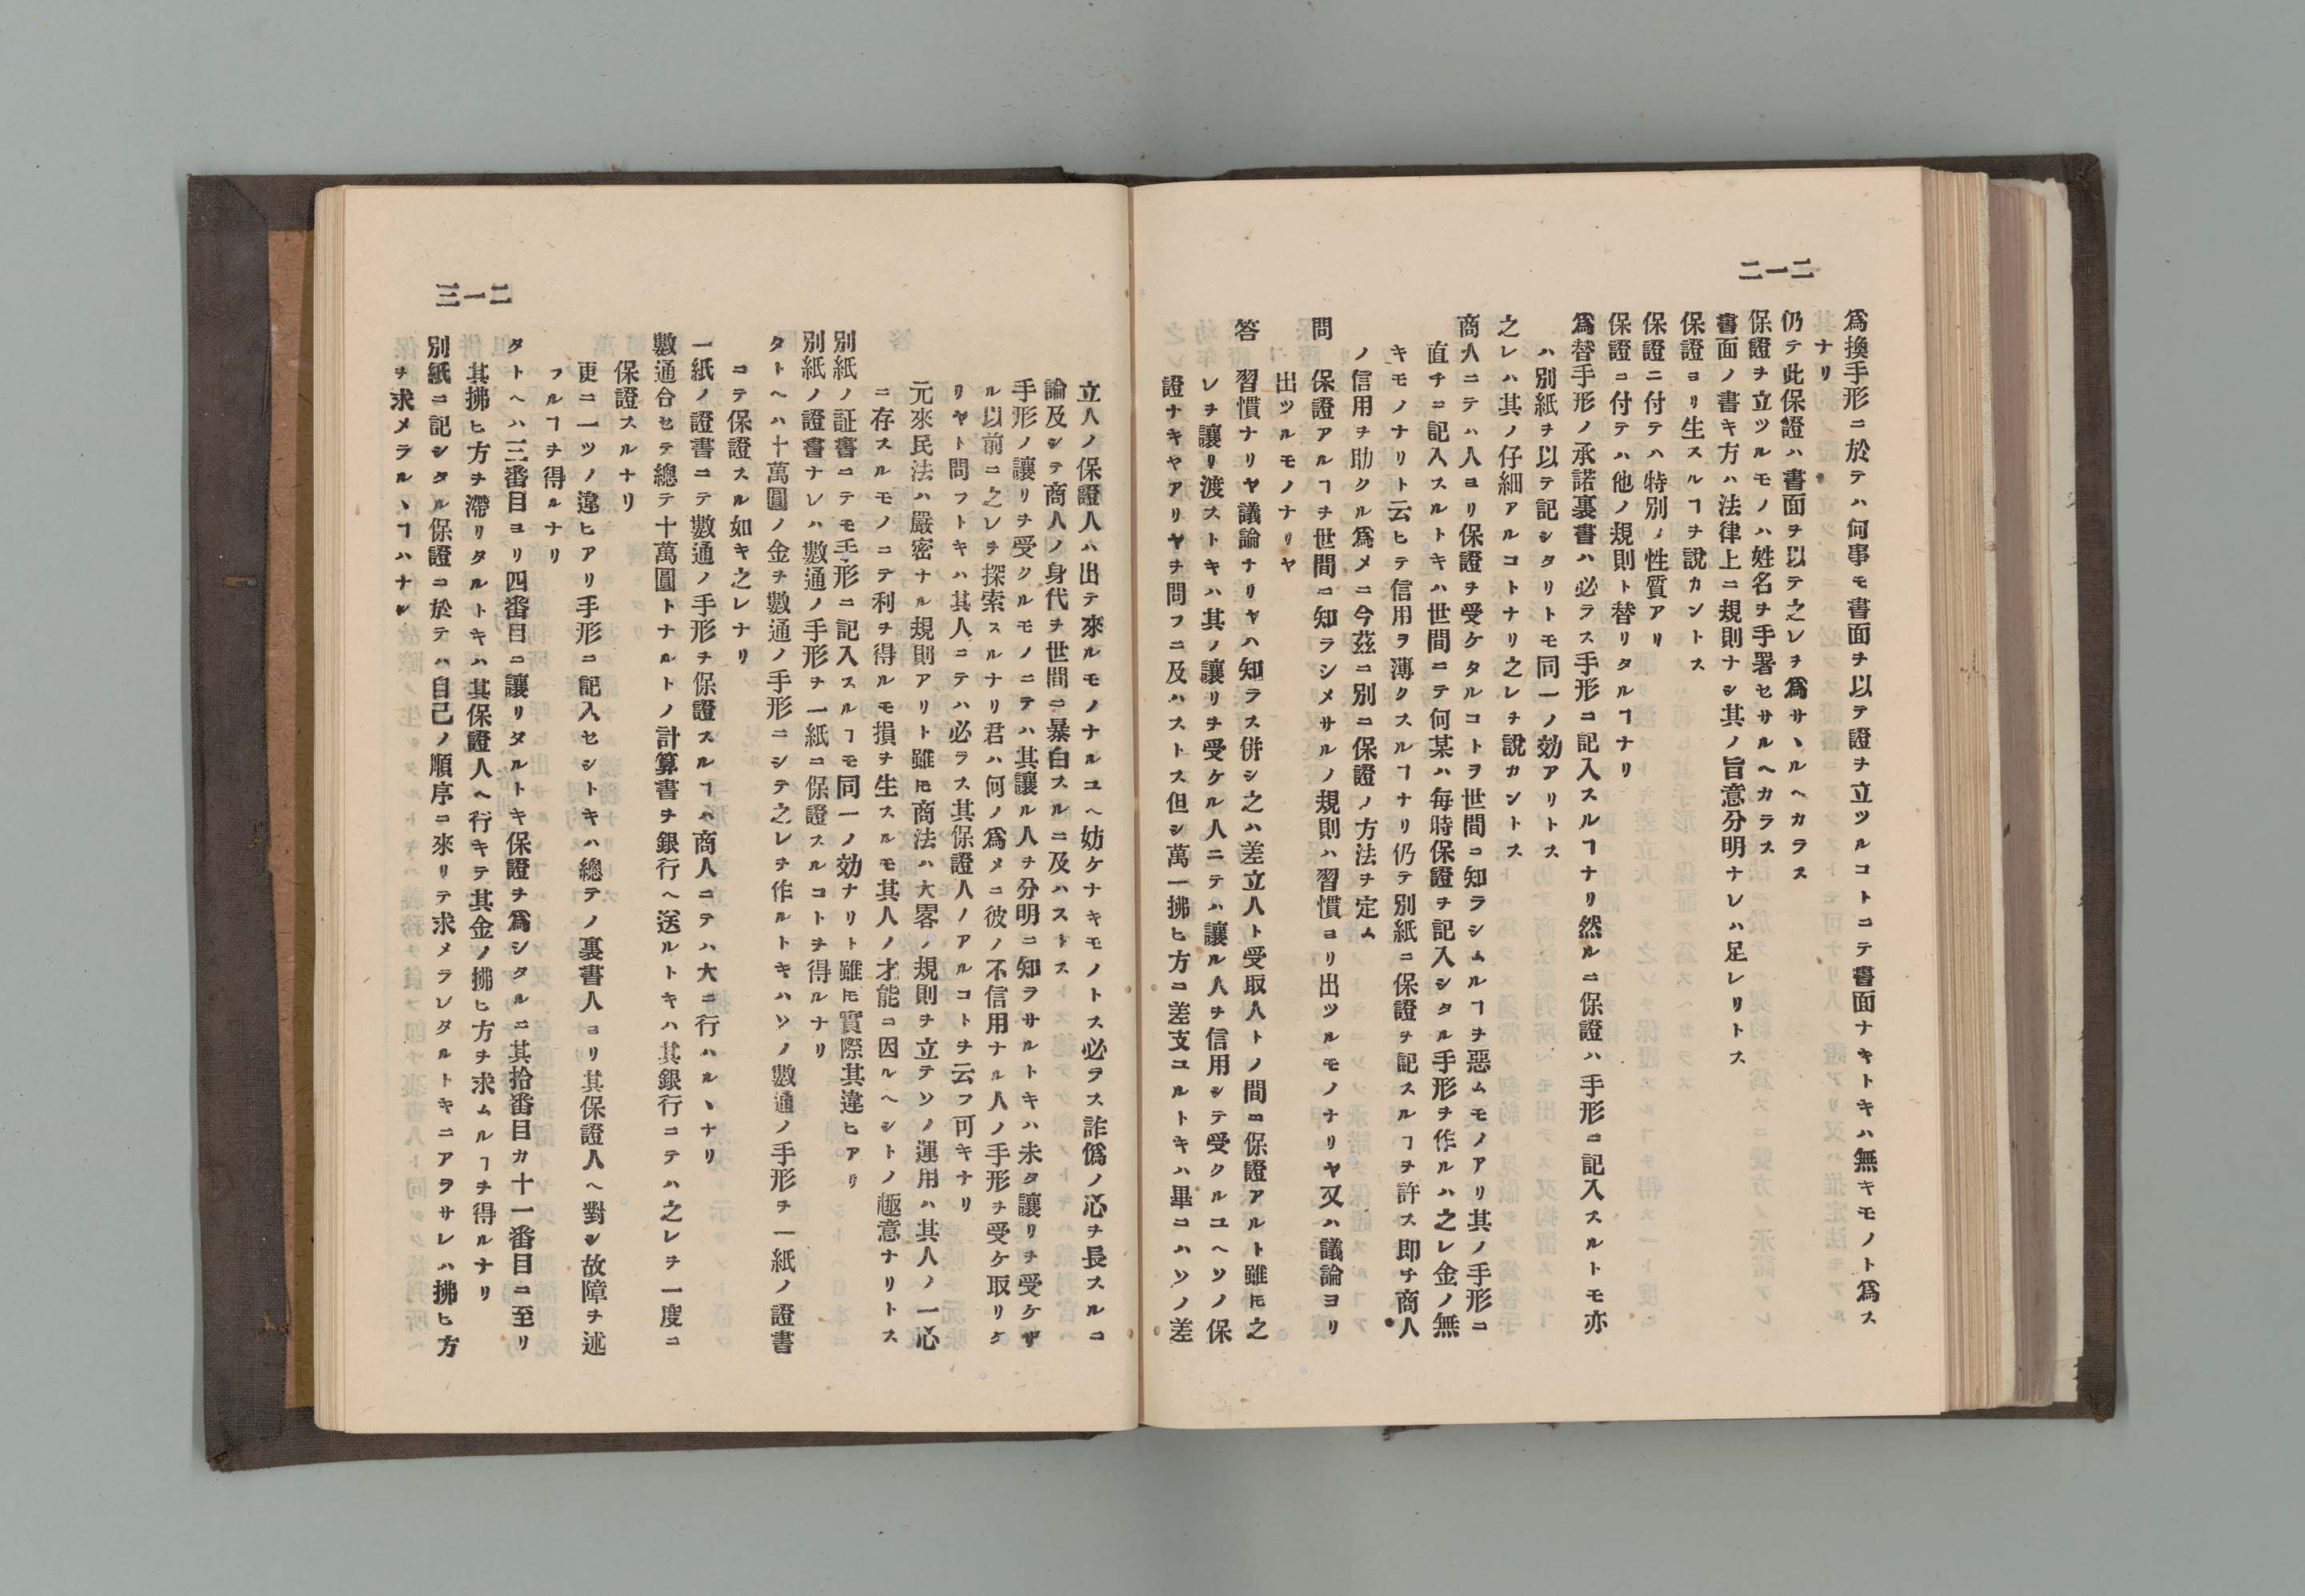 二一二
爲換手形ニ於テハ何事モ書面ヲ以テ證ヲ立ツルコトニテ書面ナキトキハ無キモノト爲ス
ナリ
仍テ此保證ハ書面ヲ以テ之レヲ爲サヽルヘカラス
保證ヲ立ツルモノハ姓名ヲ手署セサルヘカラス
書面ノ書キ方ハ法律上ニ規則ナシ其ノ旨意分明ナレハ足レリトス
保證ヨリ生スルヿヲ說カントス
保證ニ付テハ特別ノ性質アリ
保證ニ付テハ他ノ規則ト替リタルヿナリ
爲替手形ノ承諾裏書ハ必ラス手形ニ記入スルヿナリ然ルニ保證ハ手形ニ記入スルトモ亦
ハ別紙ヲ以テ記シタリトモ同一ノ効アリトス
之レハ其ノ仔細アルコトナリ之レヲ說カントス
商人ニテハ人ヨリ保證ヲ受ケタルコトヲ世間ニ知ラシムルヿヲ惡ムモノアリ其ノ手形ニ
直チニ記入スルトキハ世間ニテ何某ハ每時保證ヲ記入シタル手形ヲ作ルハ之レ金ノ無
キモノナリト云ヒテ信用ヲ薄クスルヿナリ仍テ別紙ニ保證ヲ記スルヿヲ許ス即チ商人
ノ信用ヲ助クル爲メニ今茲ニ別ニ保證ノ方法ヲ定ム
問　保證アルヿヲ世間ニ知ラシメサルノ規則ハ習慣ヨリ出ツルモノナリヤ又ハ議論ヨリ
出ツルモノナリヤ
答　習慣ナリヤ議論ナリヤハ知ラス併シ之ハ差立人ト受取人トノ間ニ保證アルト雖𪜈之
レヲ讓リ渡ストキハ其ノ讓リヲ受ケル人ニテハ讓ル人ヲ信用シテ受クルユヘソノ保
證ナキヤアリヤヲ問フニ及ハストス但シ萬一拂ヒ方ニ差支ユルトキハ畢ニハソノ差
立人ノ保證人ハ出テ來ルモノナルユヘ妨ケナキモノトス必ヲス詐僞ノ心ヲ長スルニ
論及シテ商人ノ身代ヲ世間ニ暴白スルニ及ハストス
手形ノ讓リヲ受クルモノニテハ其讓ル人ヲ分明ニ知ヲサルトキハ未タ讓リヲ受ケサ
ル以前ニ之レヲ探索スルナリ君ハ何ノ爲メニ彼ノ不信用ナル人ノ手形ヲ受ケ取リケ
リヤト問フトキハ其人ニテハ必ラス其保證人ノアルコトヲ云フ可キナリ
元來民法ハ嚴密ナル規則アリト雖𪜈商法ハ大畧ノ規則ヲ立テソノ運用ハ其人ノ一心
ニ存スルモノニテ利ヲ得ルモ損ヲ生スルモ其人ノ才能ニ因ルヘシトノ趣意ナリトス
別紙ノ証書ニテモ手形ニ記入スルヿモ同一ノ効ナリト雖𪜈實際其違ヒアリ
別紙ノ證書ナレハ數通ノ手形ヲ一紙ニ保證スルコトヲ得ルナリ
タトヘハ十萬圓ノ金ヲ數通ノ手形ニシテ之レヲ作ルトキハソノ數通ノ手形ヲ一紙ノ證書
ニテ保證スル如キ之レナリ
一紙ノ證書ニテ數通ノ手形ヲ保證スルヿハ商人ニテハ大ニ行ハルヽナリ
數通合セテ總テ十萬圓トナルトノ計算書ヲ銀行ヘ送ルトキハ其銀行ニテハ之レヲ一度ニ
保證スルナリ
更ニ一ツノ違ヒアリ手形ニ記入セシトキハ總テノ裏書人ヨリ其保證人ヘ對シ故障ヲ述
フルヿヲ得ルナリ
タトヘハ三番目ヨリ四番目ニ讓リタルトキ保證ヲ爲シタルニ其拾番目カ十一番目ニ至リ
其拂ヒ方ヲ滯リタルトキハ其保證人ヘ行キテ其金ノ拂ヒ方ヲ求ムルヿヲ得ルナリ
別紙ニ記シタル保證ニ於テハ自己ノ順序ニ來リテ求メラレタルトキニアヲサレハ拂ヒ方
ヲ求メラルヽヿハナシ
三一二